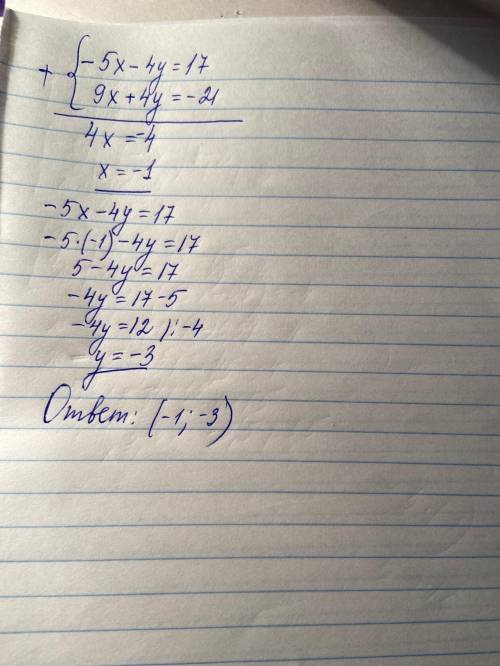 + { -5x - 4y = 17
9x + 4y = -21
4x = -4
x = -1
-5x - 4y = 17
-5·(-1) - 4y = 17
5 - 4y = 17
-4y = 17 - 5
-4y = 12 ) : -4
y = -3
Ответ: (-1; -3)